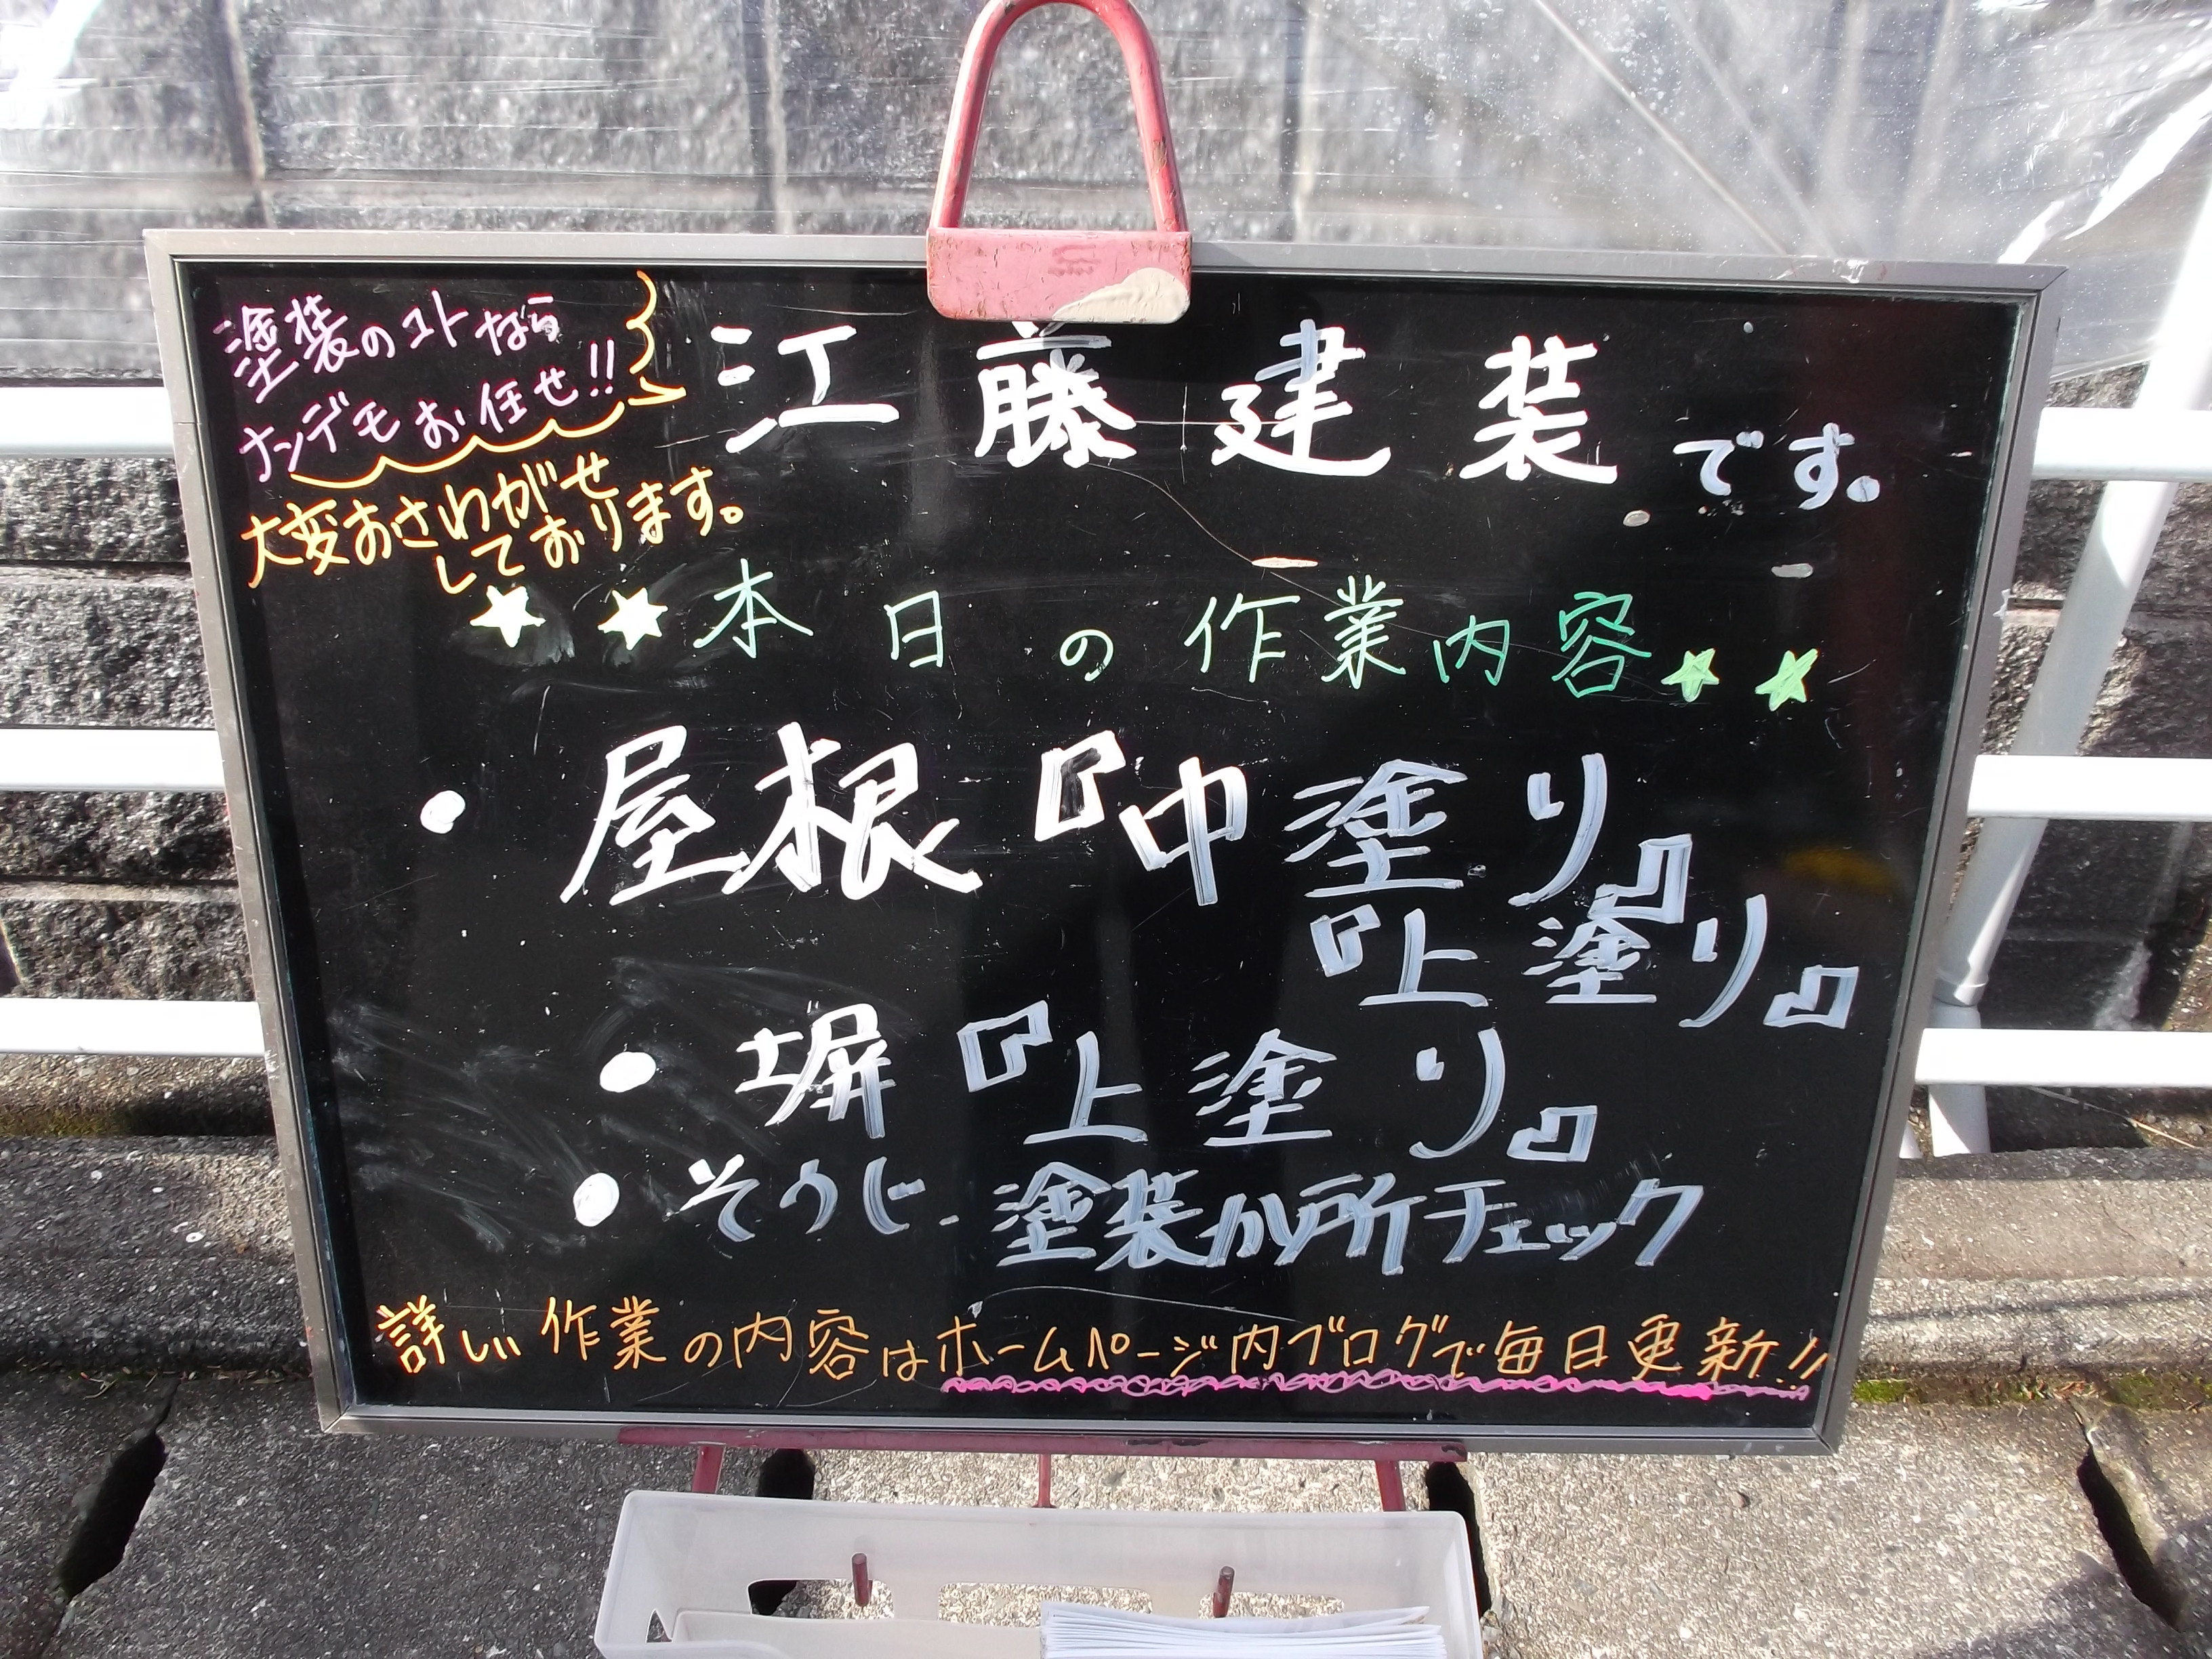 塗装のコトなら
ナンデモお任せ!!
江藤建装です。
大変おさわがせ
しております。
★★本日の作業内容★★
・屋根『中塗り』
『上塗り』
・塀『上塗り』
・そうじ-塗装か所チェック
詳しい作業の内容はホームページ内ブログで毎日更新!!